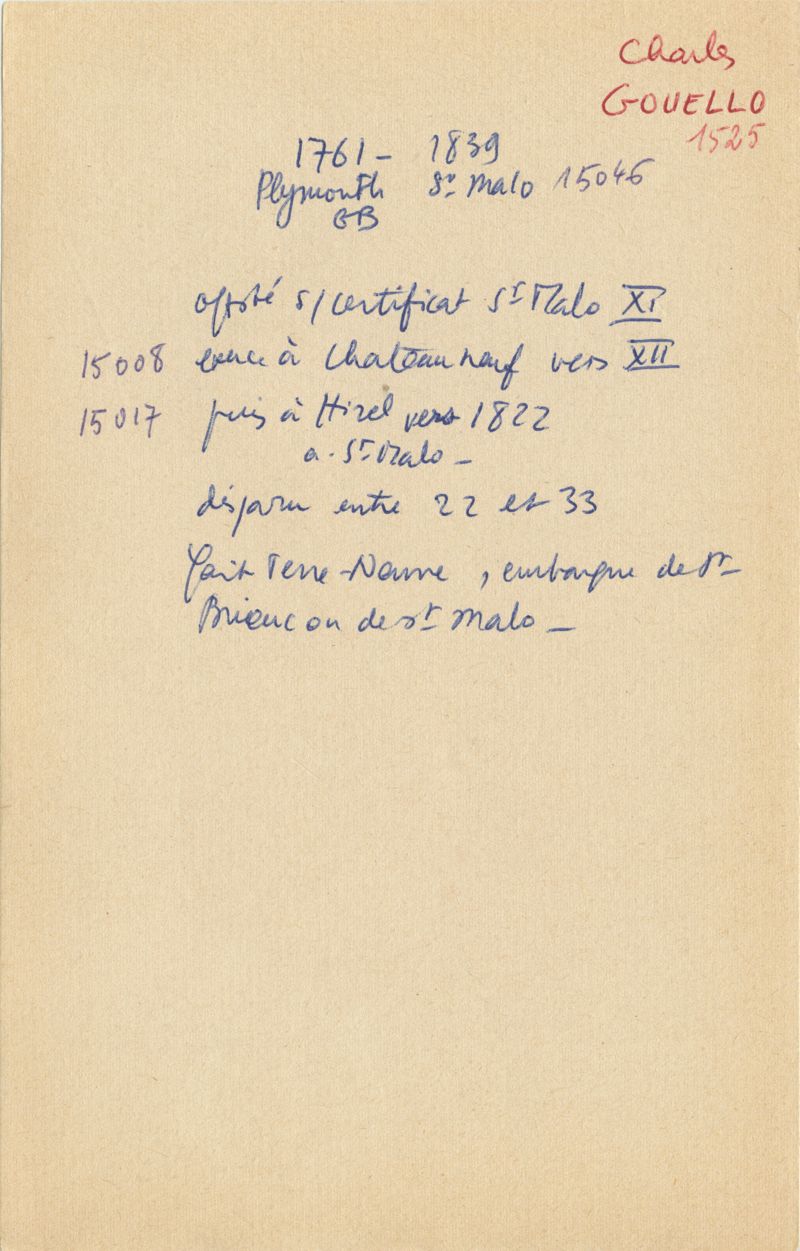 Charles
GOUELLO
1525
1761 - 1839
Plymouth St Malo 15046
GB
s/certificat St Malo XI
15008 exerce à Chateauneuf vers XII
15017 puis à Hirel vers 1822
a. St Malo -
disparu entre 22 et 33
fait Terre-Neuve, embarque de St-
Brieuc ou de St Malo -